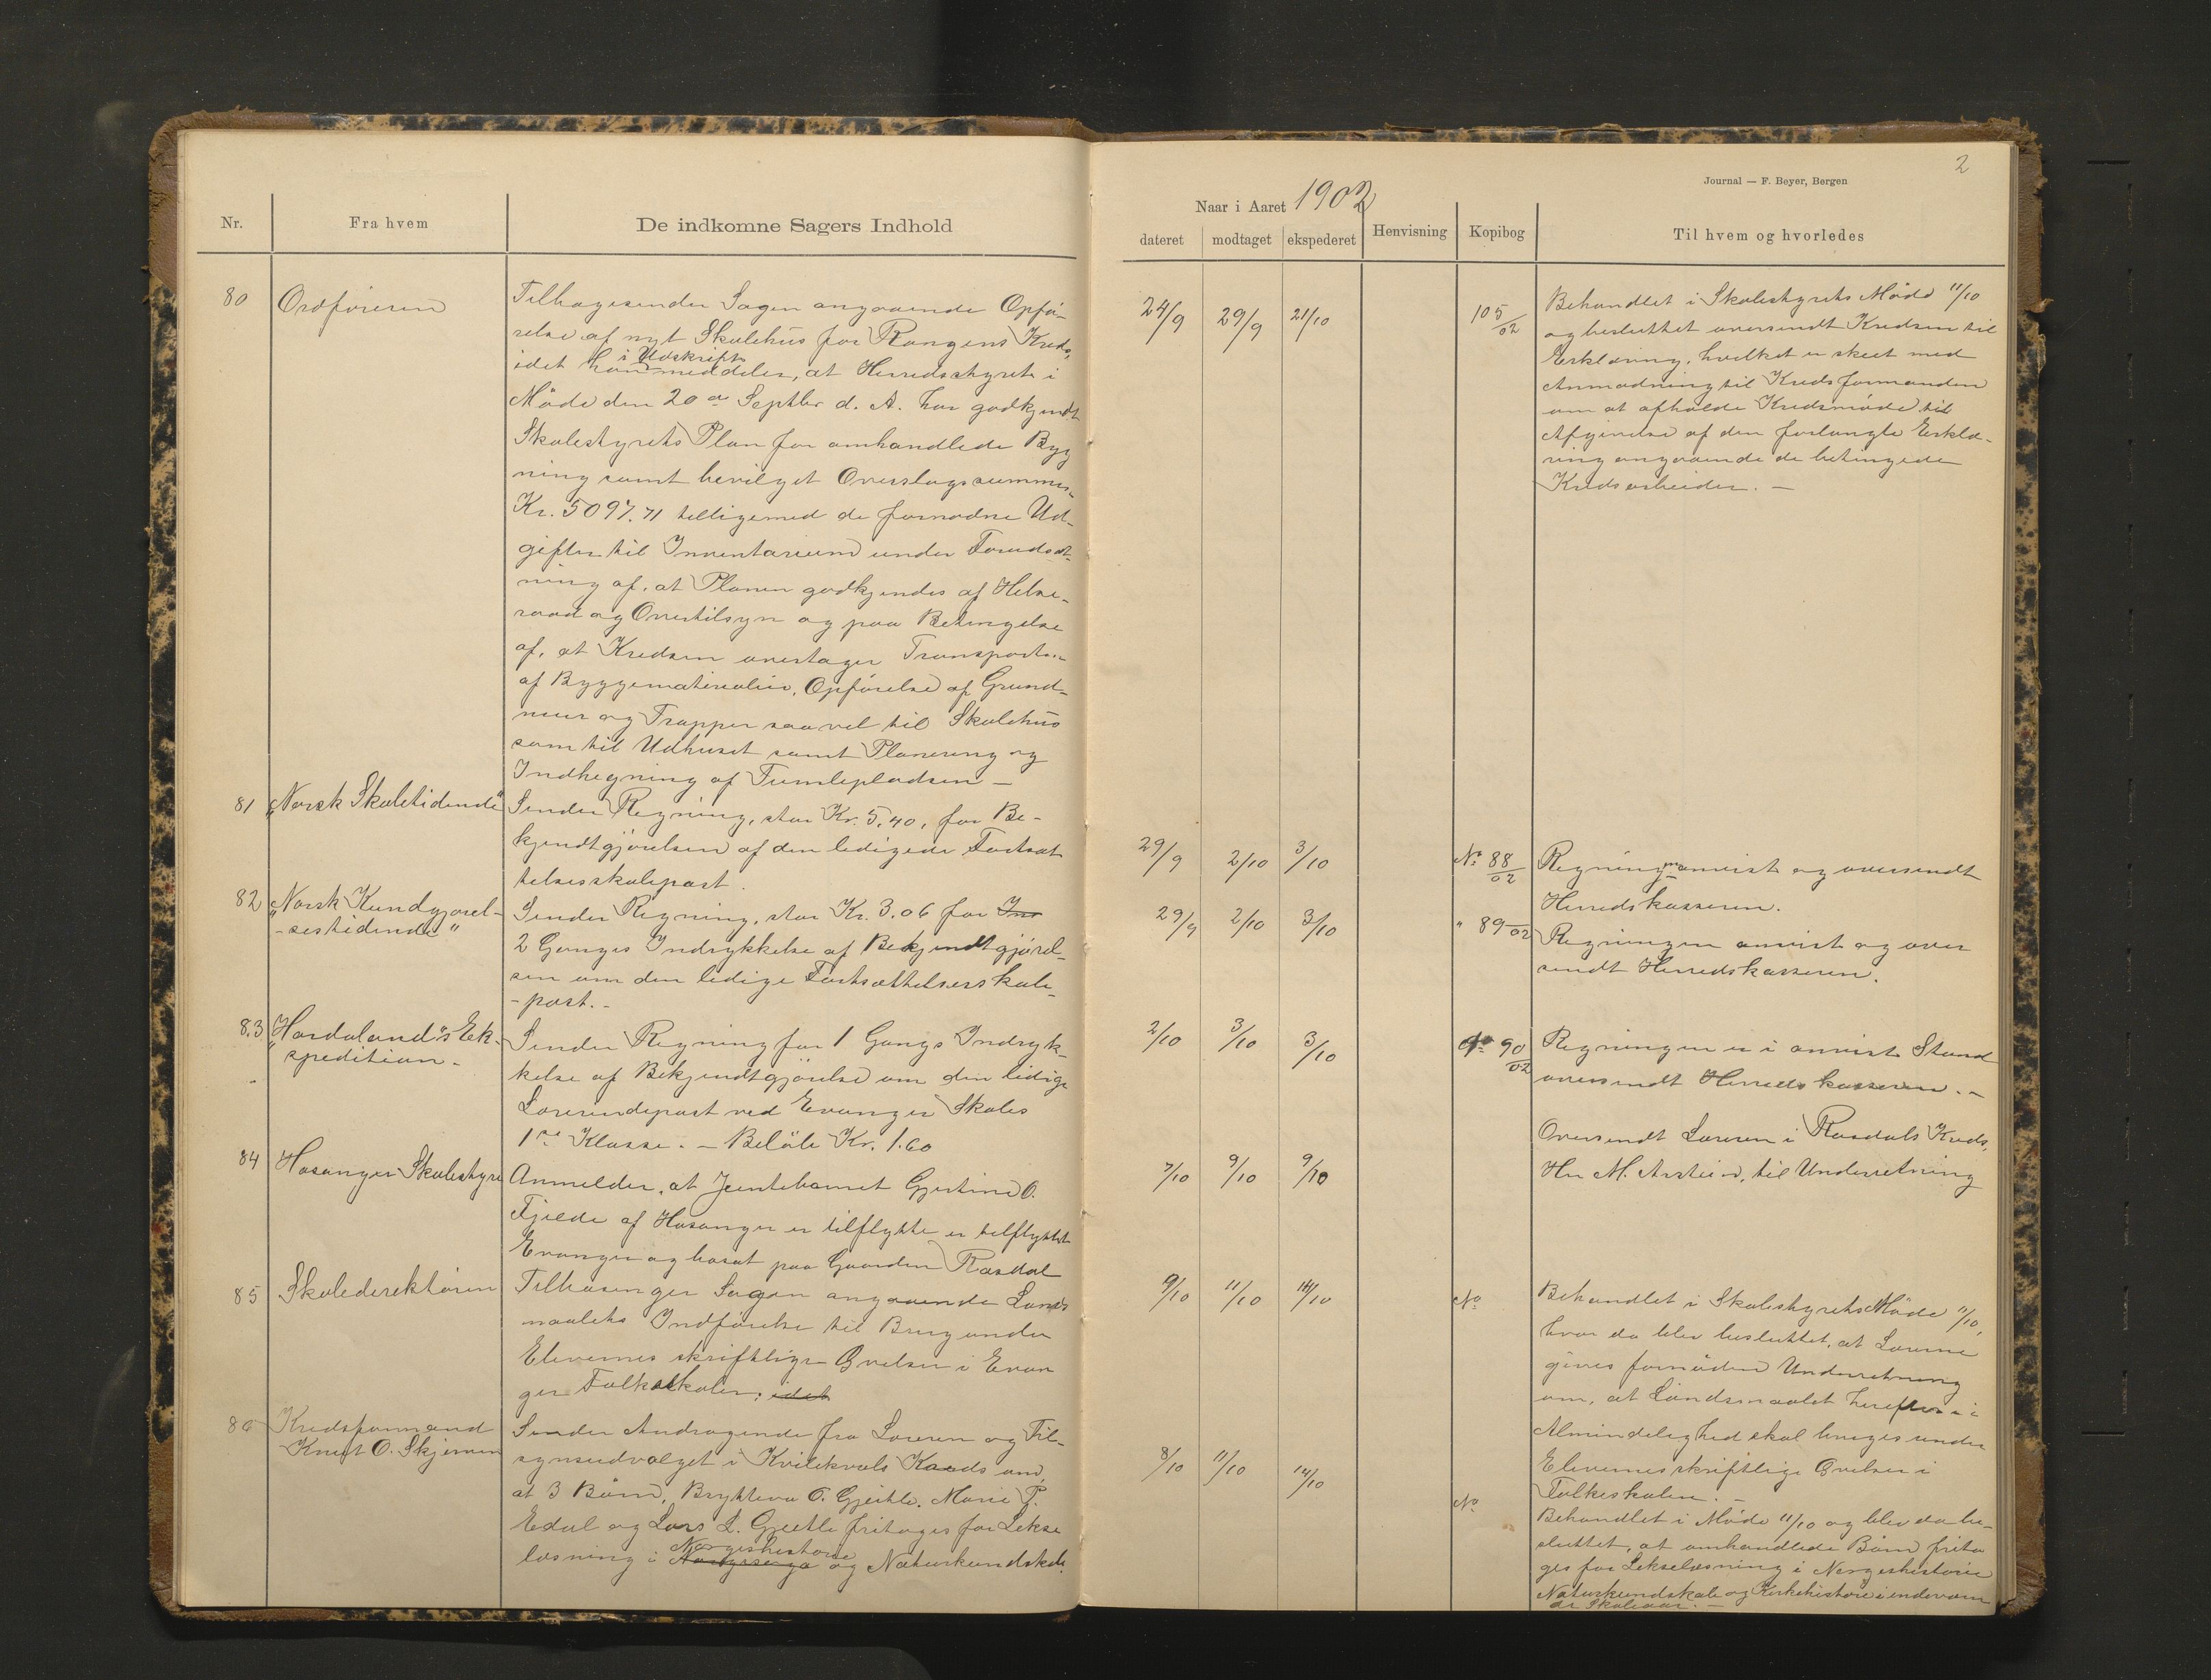 2
Journal — F. Beyer, Bergen
Nr.
Fra hvem
De indkomne Sagers Indhold
Naar i Aaret 1902
dateret
modtaget
ekspederet
Henvisning
Kopibog
Til hvem og hvorledes
80
Ordføreren
Tilbagesender Sagen angaaende Opfø-
relse af nyt Skolehus for Rongens Kreds,
i Udskrift
idet han meddeler, at Herredsstyret i
Møde den 20de Septbr d. A. har godkjendt
Skolestyrets Plan for omhandlede Byg
ning samt bevilget Overslagssummen
Kr. 5097.71 tilligemed de fornødne Ud-
gifter til Inventarium under Forudsæt-
ning af, at Planen godkjendes af Helse-
raad og Overtilsyn og paa Betingelse
af, at Kredsen overtager Transporten
af Byggematerialier, Opførelse af Grund-
mur og Trapper saavel til Skolehus
som til Udhuset samt Planering og
Indhegning af Tumlepladsen —
24/9
29/9
21/10
105/02
Behandlet i Skolestyrets Møde 11/10
og besluttet oversendt Kredsen til
Erklæring, hvilket er skeet med
Anmodning til Kredsformanden
om at afholde Kredsmøde til
Afgivelse af den forlangte Erklæ-
ring angaaende de betingede
Kredsarbeider. —
81
"Norsk Skoletidende"
Sender Regning, stor Kr. 5,40, for Be-
kjendtgjørelsen af den ledigede Fortsæt
telsesskolepost.
29/9
2/10
3/10
No 88/02
Regningen anvist og oversendt
Herredskasseren.
82
"Norsk Kundgjørel-
-sestidende"
Sender Regning, stor Kr. 3.06 for Ind
2 Ganges Indrykkelse af Bekjendtgjørel-
sen om den ledige Fortsættelsesskole-
-post. -
29/9
2/10
3/10
" 89/02
Regningen anvist og over
sendt Herredskasseren.
83
"Hordaland"s Ek-
spedition -
Sender Regning for 1 Gangs Indryk-
kelse af Bekjendtgjørelse om den ledige
Lærerindepost ved Evanger Skoles
1ste Klasse. — Beløb Kr. 1.60
2/10
3/10
3/10
No 90/02
Regningen er i anvist Stand
oversendt Herredskasseren. -
84
Hosanger Skolestyre
Anmelder, at Jentebarnet Gjertine O.
Fjelde af Hosanger er tilflytte er tilflyttet
Evanger og bosat paa Gaarden Rasdal
7/10
9/10
9/10
Oversendt Læreren i Rasdals Kreds,
Hr. M. Arstein, til Underretning
85
Skoledirektøren
Tilbringer Sagen angaaende Lands
maalets Indførelse til Brug under
Elevernes skriftlige Øvelser i Evan
ger Folkeskoler; idet
9/10
11/10
14/10
No
Behandlet i Skolestyrets Møde 11/10,
hvor da blev besluttet, at Lærerne
gives fornøden Underretning
om, at Landsmaalet herefter i
Almindelighed skal bruges under
Elevernes skriftlige Øvelser i
Folkeskolen. —
86
Kredsformand
Knut O. Skjerven
Sender Andragende fra Læreren og Til-
synsudvalget i Kvilekvals Kreds om,
at 3 Børn, Bryteva O. Gjeitle, Marie P.
Edal og Lars L. Gjeitle fritages for Lekse
Norgeshistorie
læsning i og Naturkundskab.
8/10
11/10
14/10
No
Behandlet i Møde 11/10 og blev da be-
sluttet, at omhandlede Børn frita
ges for Lekselæsning i Norgeshistorie
Naturkundskab og Kirkehistorie i indeværen
de Skoleaar. —